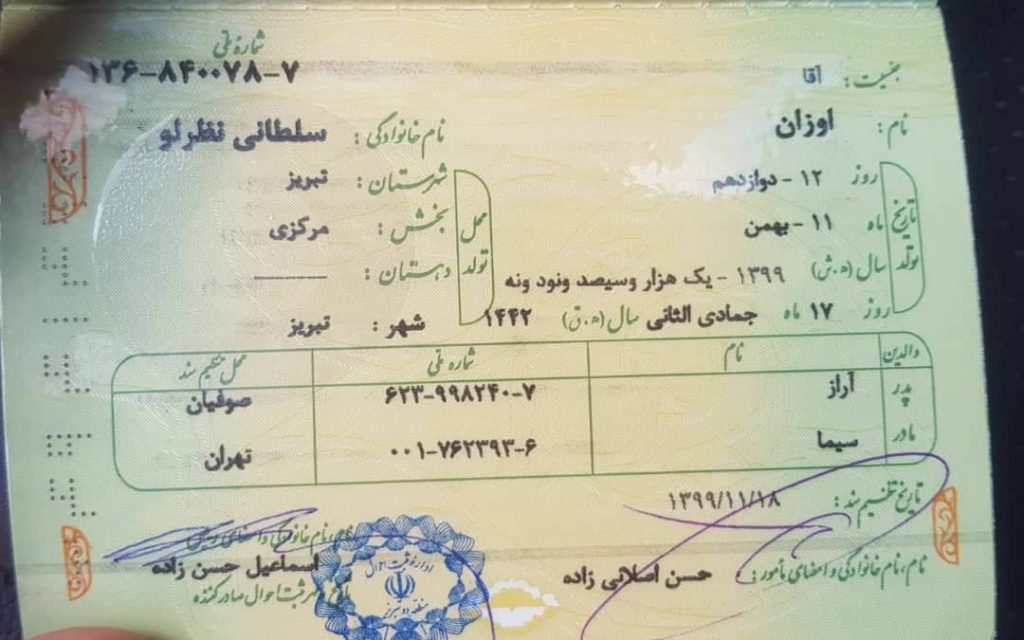 شماره ملی
۱۳۶-۸۴۰۰۷۸-۷
جنسیت: آقا
نام: اوزان
نام خانوادگی: سلطانی نظرلو
تاریخ تولد
روز ۱۲ - دوازدهم
ماه ۱۱ - بهمن
سال (ه.ش) ۱۳۹۹ - یک هزار وسیصد ونود ونه
روز ۱۷ ماه جمادی الثانی سال (ه.ق) ۱۴۴۲
محل تولد
شهرستان: تبریز
بخش: مرکزی
دهستان: ———
شهر: تبریز
والدین نام شماره ملی محل تنظیم سند
پدر آراز ۶۲۳-۹۹۸۲۴۰-۷ صوفیان
مادر سیما ۰۰۱-۷۶۲۳۹۳-۶ تهران
تاریخ تنظیم سند: ۱۳۹۹/۱۱/۱۸
نام، نام خانوادگی و امضای مأمور: حسن اصلانی زاده
نام، نام خانوادگی و امضای
اسماعیل حسن زاده
ثبت احوال صادرکننده
اداره ثبت احوال
منطقه دو تبریز